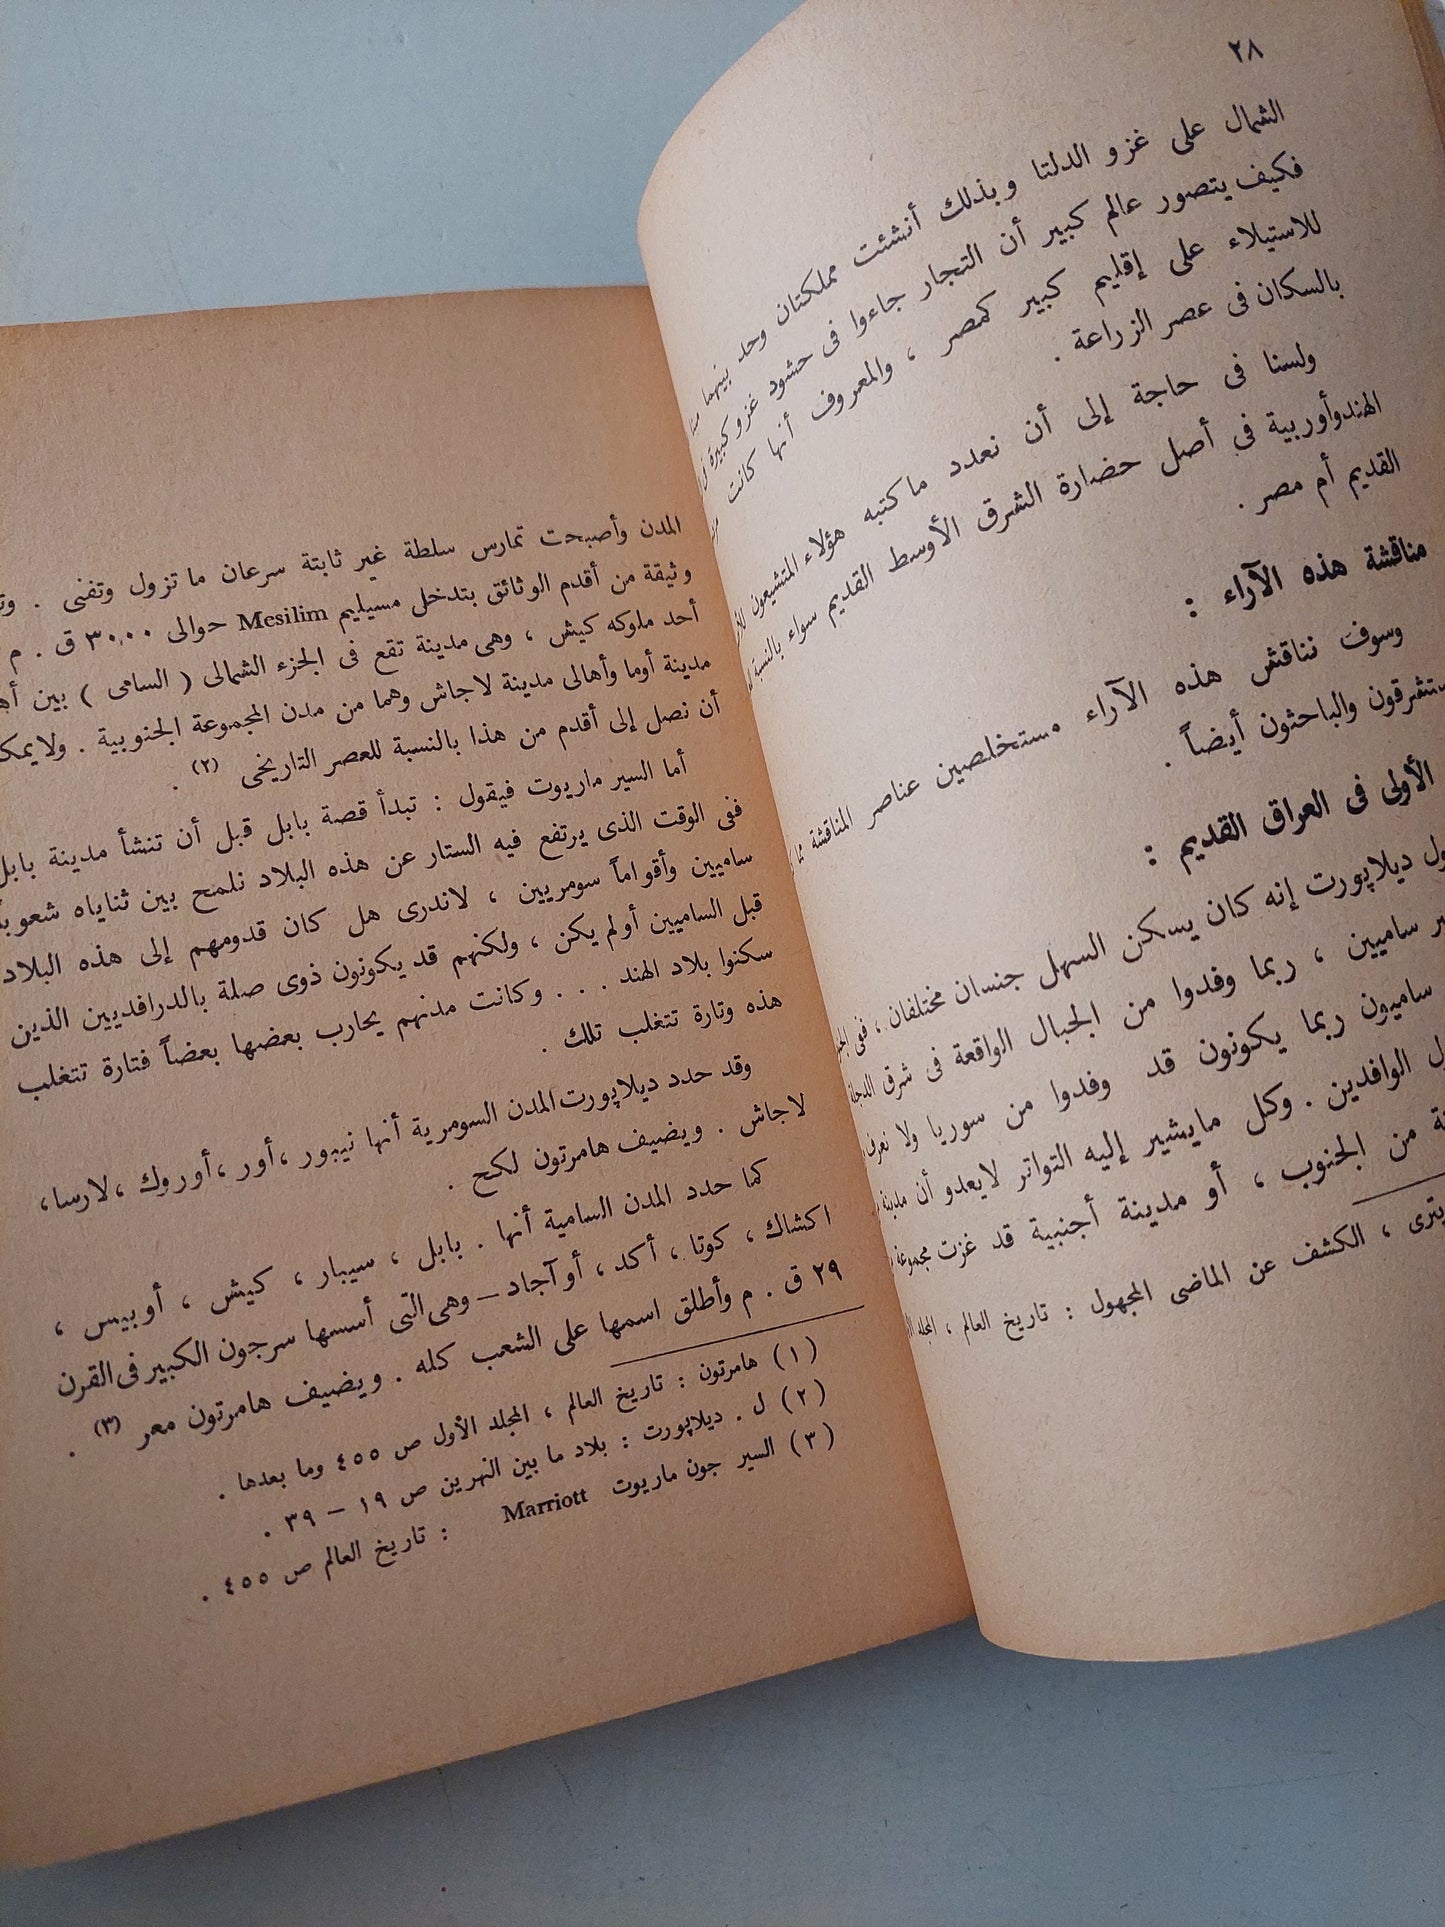 ٢٨
الشمال على غزو الدلتا وبذلك أنشئت مملكتان وحد بينهما
فكيف يتصور عالم كبير أن التجار جاءوا فى حشود غزو كبيرة
للاستيلاء على إقليم كبير كمصر ، والمعروف أنها كانت
بالسكان فى عصر الزراعة .
ولسنا فى حاجة إلى أن نعدد ما كتبه هؤلاء المتشيعون
الهندوأوربية فى أصل حضارة الشرق الأوسط القديم سواء بالنسبة
القديم أم مصر .
مناقشة هذه الآراء :
وسوف نناقش هذه الآراء مستخلصين عناصر المناقشة
والباحثون أيضاً .
الأولى فى العراق القديم :
ديلاپورت إنه كان يسكن السهل جنسان مختلفان ، ففى
ساميين ، ربما وفدوا من الجبال الواقعة فى شرق الدجلة
ساميون ربما يكونون قد وفدوا من سوريا ولا نعرف
الوافدين . وكل مايشير إليه التواتر لايعدو أن مدينة
من الجنوب ، أو مدينة أجنبية قد غزت مجموعة
، الكشف عن الماضى المجهول : تاريخ العالم ، المجلد
المدن وأصبحت تمارس سلطة غير ثابتة سرعان ما تزول وتفنى .
وثيقة من أقدم الوثائق بتدخل مسيليم Mesilim حوالى ٣٠٠٠ ق . م
أحد ملوك كيش ، وهى مدينة تقع فى الجزء الشمالى ( السامى ) بين
مدينة أوما وأهالى مدينة لاجاش وهما من مدن المجموعة الجنوبية .
أن نصل إلى أقدم من هذا بالنسبة للعصر التاريخى (٢) .
أما السير ماريوت فيقول : تبدأ قصة بابل قبل أن تنشأ مدينة بابل
ففى الوقت الذى يرتفع فيه الستار عن هذه البلاد نلمح بين ثناياه
ساميين وأقواماً سومريين ، لاندرى هل كان قدومهم إلى هذه البلاد
قبل الساميين أولم يكن ، ولكنهم قد يكونون ذوى صلة بالدرافديين الذين
سكنوا بلاد الهند . . . وكانت مدنهم يحارب بعضها بعضاً فتارة تتغلب
هذه وتارة تتغلب تلك .
وقد حدد ديلاپورت المدن السومرية أنها نيبور ، أور ، أوروك ، لارسا ،
لاجاش . ويضيف هامرتون لكح .
كما حدد المدن السامية أنها . بابل ، سيبار ، كيش ، أوبيس ،
اكشاك ، كوتا ، أكد ، أو آجاد – وهى التى أسسها سرجون الكبير فى القرن
٢٩ ق . م وأطلق اسمها على الشعب كله . ويضيف هامرتون معر (٣) .
(١) هامرتون : تاريخ العالم ، المجلد الأول ص ٤٥٥ وما بعدها .
(٢) ل . ديلاپورت : بلاد ما بين النهرين ص ١٩ – ٣٩ .
(٣) السير جون ماريوت Marriott : تاريخ العالم ص ٤٥٥ .